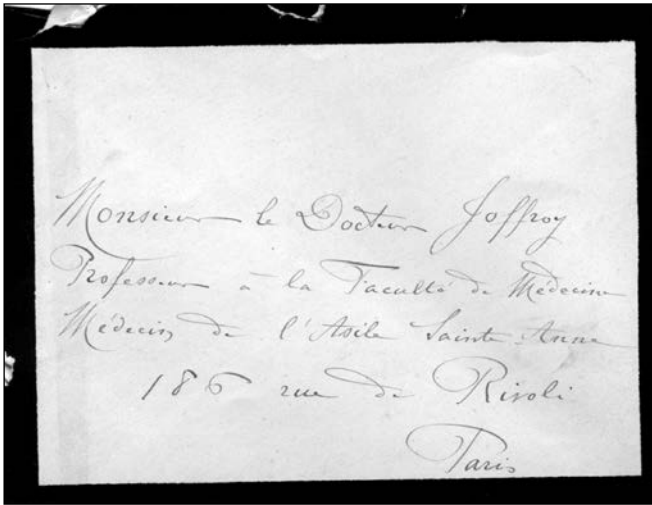 Monsieur le Docteur Joffroy
Professeur à la Faculté de Médecine
Médecin de l'Asile Sainte-Anne
186 rue de Rivoli
Paris